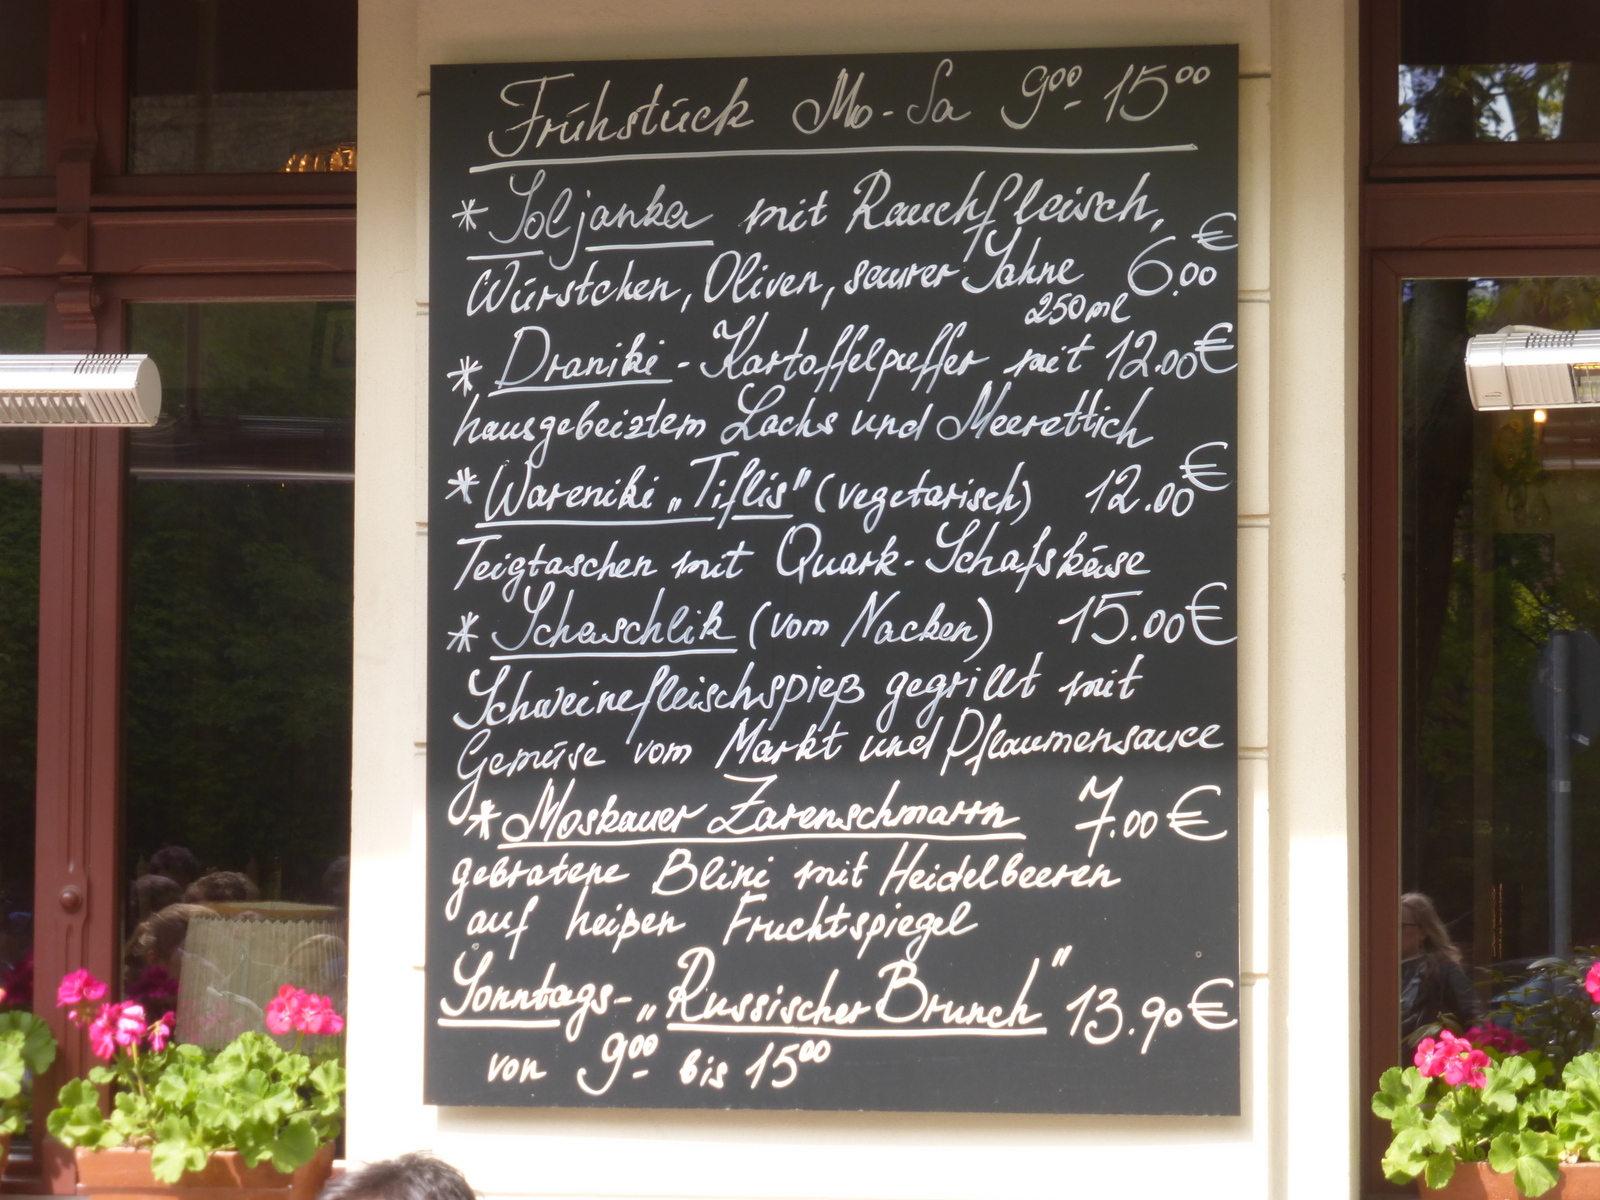 Frühstück Mo-Sa 9⁰⁰-15⁰⁰
* Soljanka mit Rauchfleisch,
Würstchen, Oliven, saurer Sahne 6.00 €
250 ml
* Draniki - Kartoffelpuffer mit 12.00 €
hausgebeiztem Lachs und Meerettich
* Wareniki „Tiflis" (vegetarisch) 12.00 €
Teigtaschen mit Quark-Schafskäse
* Schaschlik (vom Nacken) 15.00 €
Schweinefleischspieß gegrillt mit
Gemüse vom Markt und Pflaumensauce
* Moskauer Zarenschmarrn 7.00 €
gebratene Blini mit Heidelbeeren
auf heißen Fruchtspiegel
Sonntags- „Russischer Brunch" 13.90 €
von 9⁰⁰ bis 15⁰⁰